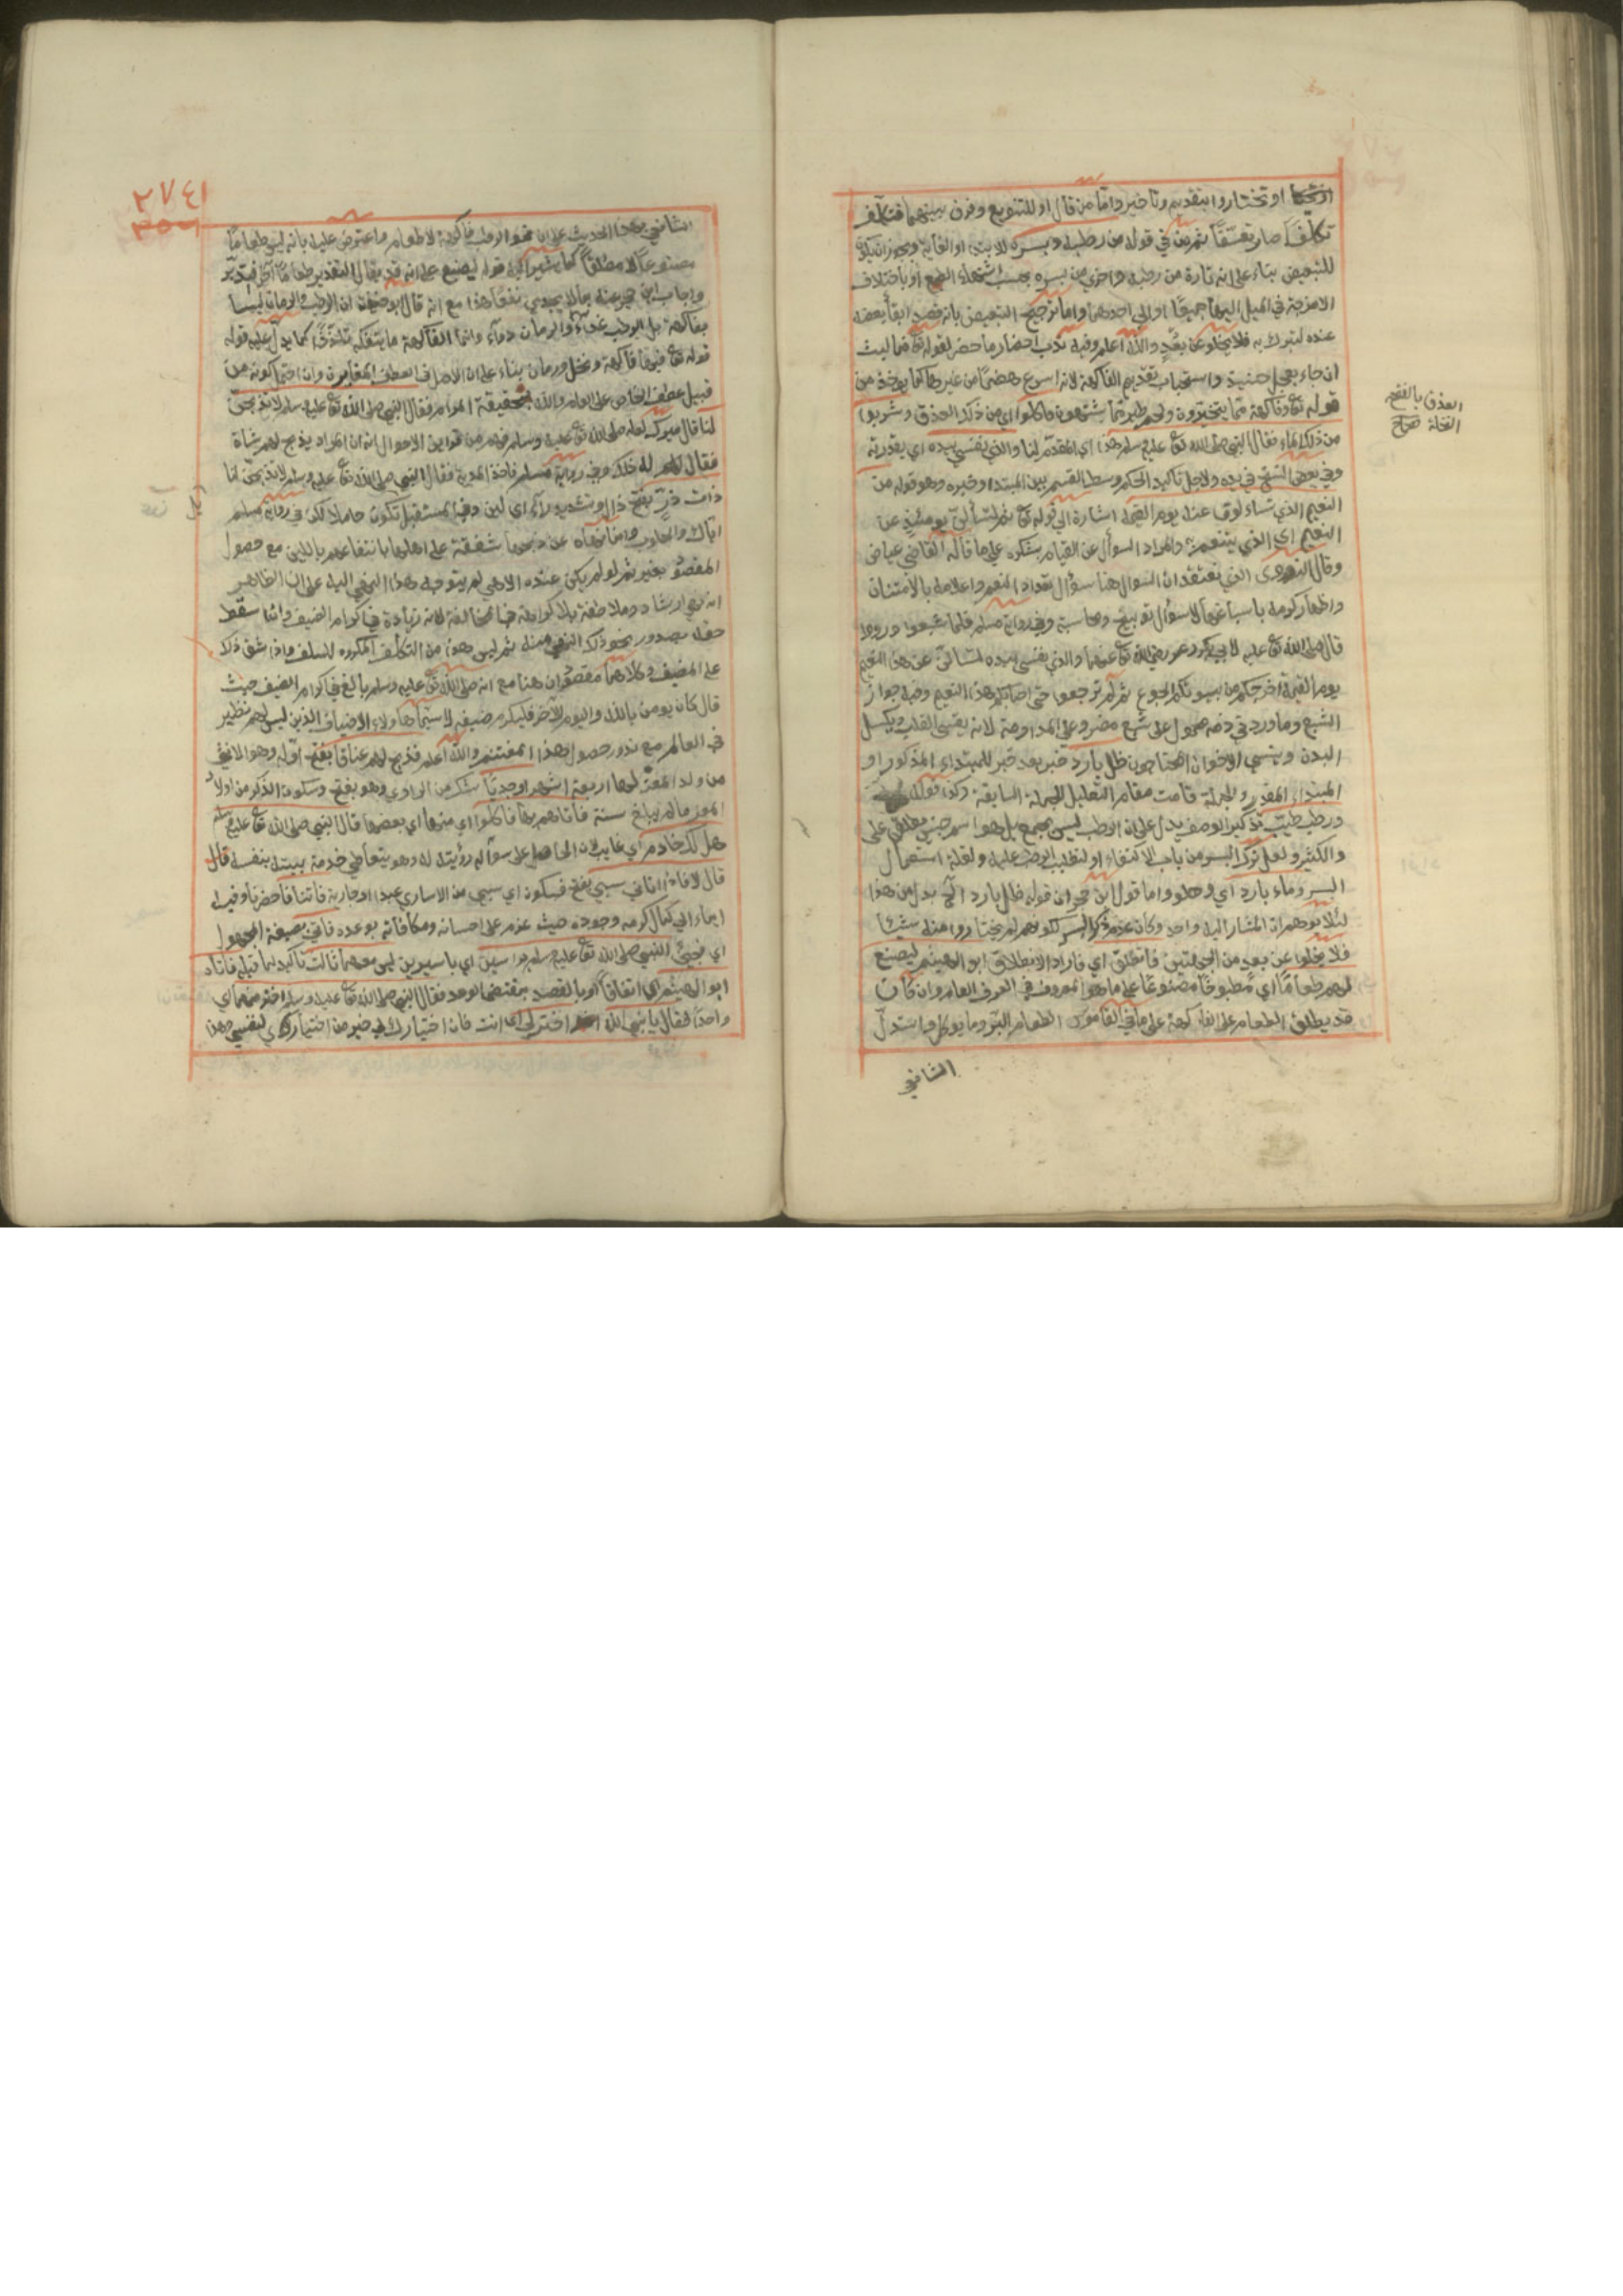 او تختاروا بتقديم وتأخير واما من قال او للتنويع وفرق بينهما فتكلف
تكلفا صار تعسفا ثم من في قوله من رطبه وبسره للابتداء او الغاية ويجوز ان يكون
للتبعيض بناء على انه تارة من رطبه واخرى من بسره بحسب اشتهاء الطبع او باختلاف
الامزجة في الميل اليهما جميعا او الى احدهما واما ترجيح التبعيض بانه قصد ابقاء بعضه
عنده لتبرك به فلا يخلو عن بعد والله اعلم وفيه ندب احضار ما حضر لقوله تع فما لبث
ان جاء بعجل حنيذ واستحباب تقديم الفاكهة لانه اسرع هضما من غيرها كما يؤخذ من
قوله تع وفاكهة مما يتخيرون ولحم طير مما يشتهون فاكلوا اي من ذلك العذق وشربوا
من ذلك الماء فقال النبي صلى الله تع عليه وسلم هذا اي المقدم لنا والذي نفسي بيده اي بقدرته
وفي بعض النسخ في يده ولاجل تأكيد الحكم وسط القسم بين المبتدا وخبره وهو قوله من
النعيم الذي تسألون عنه يوم القيمة اشارة الى قوله تع ثم لتسألن يومئذ عن
النعيم اي الذي يتنعم به والمراد السؤال عن القيام بشكره على ما قاله القاضي عياض
وقال النووي الذي نعتقد ان السؤال هنا سؤال تعداد النعم واعلامه بالامتنان
واظهار كرمه باسباغها لا سؤال توبيخ ومحاسبة وفي رواية مسلم فلما شبعوا ورووا
قال صلى الله تع عليه لابي بكر وعمر رضي الله تع عنهما والذي نفسي بيده لتسألن عن هذا النعيم
يوم القيمة اخرجكم من بيوتكم الجوع ثم لم ترجعوا حتى اصابكم هذا النعيم وفيه جواز
الشبع وما ورد في ذمه محمول على شبع مضر وعلى المداومة لانه يقسي القلب ويكسل
البدن وينسي الاخوان المحتاجين ظل بارد خبر بعد خبر للمبتداء المذكور او
المبتداء المقدر والجملة قامت مقام التعليل للجملة السابقة وكذا قوله
ورطب طيب تذكير الوصف يدل على ان الرطب ليس بجمع بل هو اسم جنس يطلق على
والكثير ولعل ترك البسر من باب الاكتفاء او لتغليب الرطب عليه ولقلة استعمال
البسر وماء بارد اي وحلو واما قول ابن حجر ان قوله ظل بارد الخ بدل من هذا
لئلا يوهم ان المشار اليه واحد وكان عدم ذكر البسر لكونهم لم يختاروا منه شيئا
فلا يخلوا عن بعد من الجملتين فانطلق اي فاراد الانطلاق ابو الهيثم ليصنع
لهم طعاما اي مطبوخا مصنوعا على ما هو المعروف في العرف العام وان كان
قد يطلق الطعام على الفاكهة على ما في القاموس الطعام البر وما يؤكل واستدل
الشافعي
العذق بالفتح
النخلة صحاح
٢٧٤١
الشافعي بهذا الحديث على ان نحو الرطب فاكهة لا طعام واعترض عليه بانه ليس طعاما
مصنوعا لا مطلقا كما يشير اليه قوله ليصنع على انه قد يقال التقدير طعاما آخر فتدبر
واجاب ابن حجر عنه بما لا يجدي نفعا هذا مع انه قال ابو حنيفة ان الرطب والرمان ليسا
بفاكهة بل الرطب غذاء والرمان دواء وانما الفاكهة ما يتفكه تلذذا كما يدل عليه قوله
قوله تع فيها فاكهة ونخل ورمان بناء على ان الاصل في العطف المغايرة وان احتمل كونه من
قبيل عطف الخاص على العام والله بحقيقة المرام فقال النبي صلى الله تع عليه وسلم لا تذبحن
لنا قال ميرك لعله صلى الله تع عليه وسلم فهم من قراين الاحوال انه اراد يذبح لهم شاة
فقال له ذلك وفي رواية مسلم فاخذ المدية فقال النبي صلى الله تع عليه وسلم لا تذبحن لنا
ذات در بفتح دال وتشديد راء اي لبن وفي المستقبل تكون حاملا لكن في رواية مسلم
اياك والحلوب وانما نهاه عن ذبحها شفقة على اهله بانتفاعهم باللبن مع حصول
المقصود بغيره ثم لو لم يكن عنده الا هي لم يتوجه هذا النهي اليه على ان الظاهر
انه نهي ارشاد وملاطفة فلا كراهة في مخالفته لانه زيادة في اكرام الضيف وانما سقط
حقه بصدور نحو ذلك النهي منه ثم ليس هذا من التكلف المكروه للسلف واذا شق ذلك
على المضيف وكلاهما مقصوران هنا مع انه صلى الله تع عليه وسلم بالغ في اكرام الضيف حيث
قال كان يؤمن بالله واليوم الآخر فليكرم ضيفه لا سيما هؤلاء الاضياف الذين ليس لهم نظير
في العالم مع ندور حصول هذا المغتنم والله اعلم فذبح لهم عناقا بفتح اوله وهو الانثى
من ولد المعز لها اربعة اشهر او جديا شك من الراوي وهو بفتح وسكون الذكر من اولاد
المعز ما لم يبلغ سنة فاتاهم بها فاكلوا اي منها اي بعضها قال النبي صلى الله تع عليه وسلم
هل لك خادم اي غايب لان الحامل على سؤاله رؤيته له وهو يتعاطى خدمة بيته بنفسه قال
قال لا فاذا اتانا سبي بفتح فسكون اي سبي من الاسارى عبدا او جارية فأتنا فاحضرنا وفيه
ايماء الى كمال كرمه وجوده حيث عزم على احسانه ومكافأته بوعده فاتي بصيغة المجهول
اي فجيء النبي صلى الله تع عليه وسلم برأسين اي باسيرين ليس معهما ثالث تأكيد لما قبله فاتاه
ابو الهيثم اي اتفاقا او بالقصد بمقتضى الوعد فقال النبي صلى الله تع عليه وسلم اختر منهما اي
واحدا فقال يا نبي الله اختر لي اي انت فان اختيارك لي خير من اختياري لنفسي وهذا